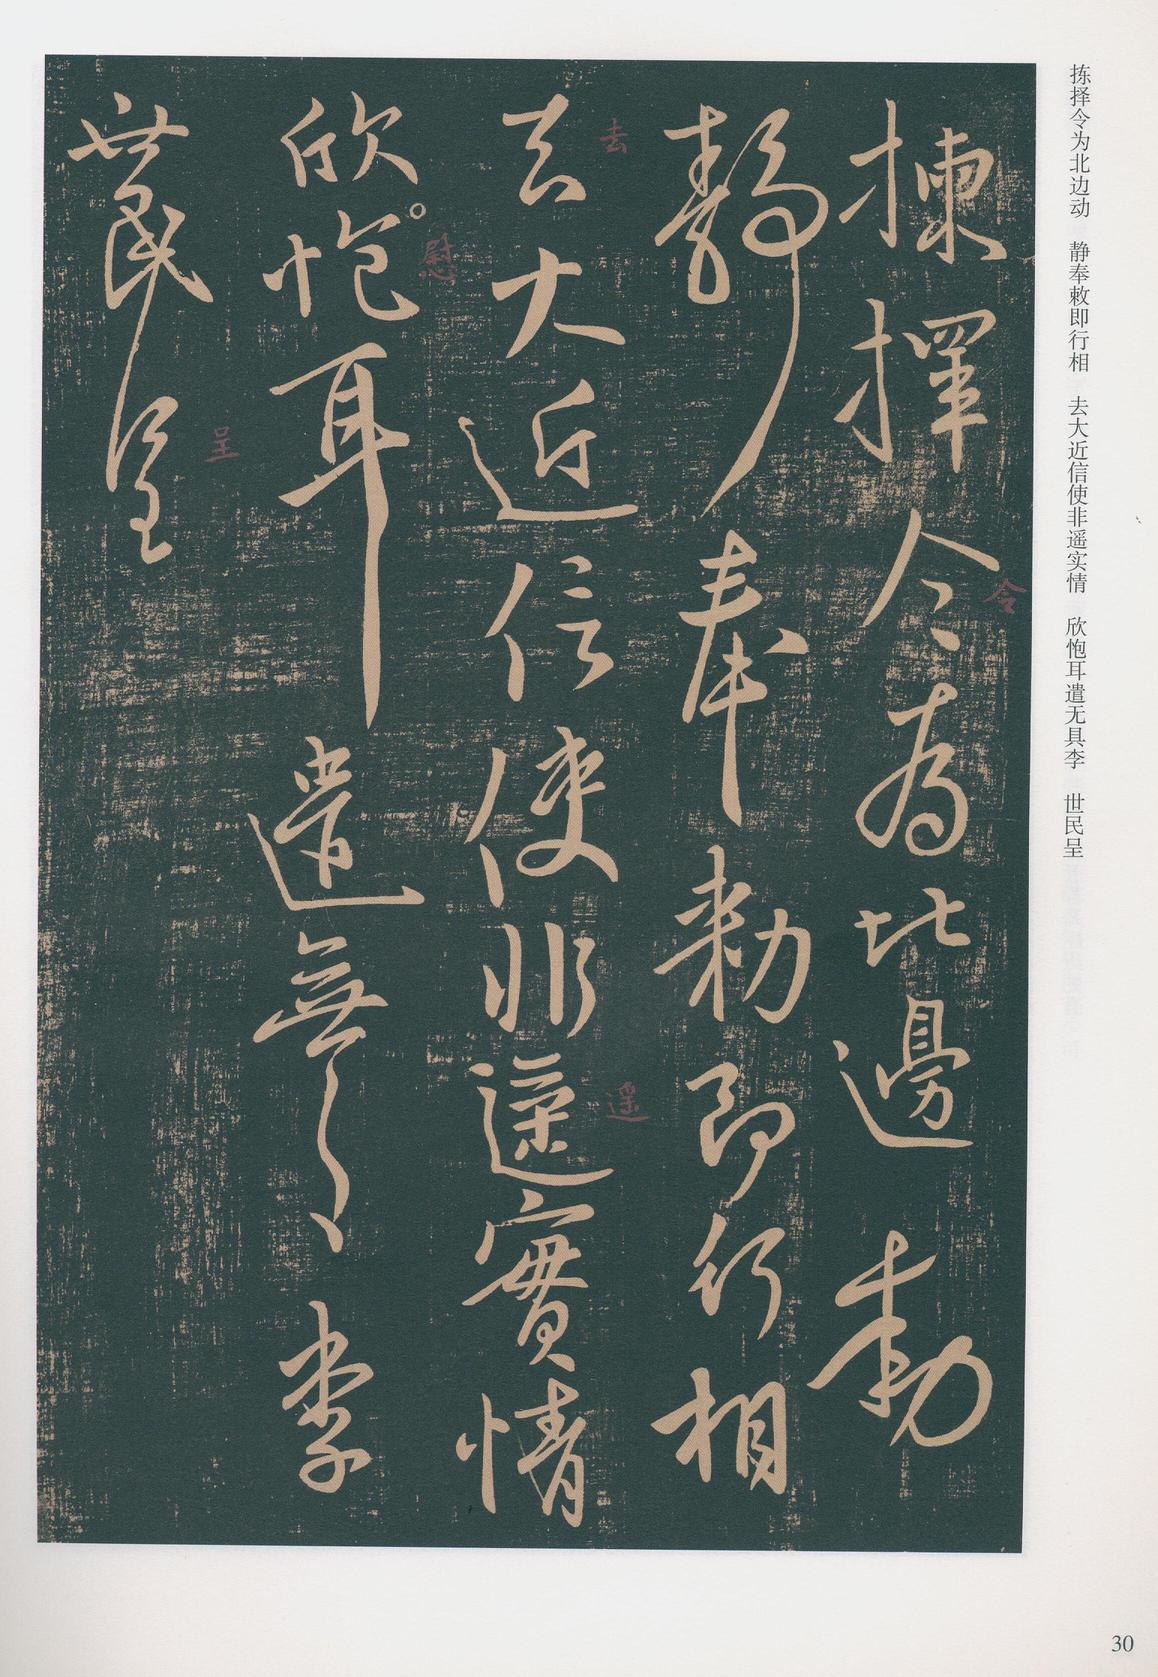 拣择令为北边动　静奉敕即行相　去大近信使非遥实情　欣饱耳遣无具李　世民呈
揀擇令為北邊動
静奉勑即行相
去大近信使非遥實情
欣怉耳遣無具李
世民呈
令
去
遥
慰
呈
30